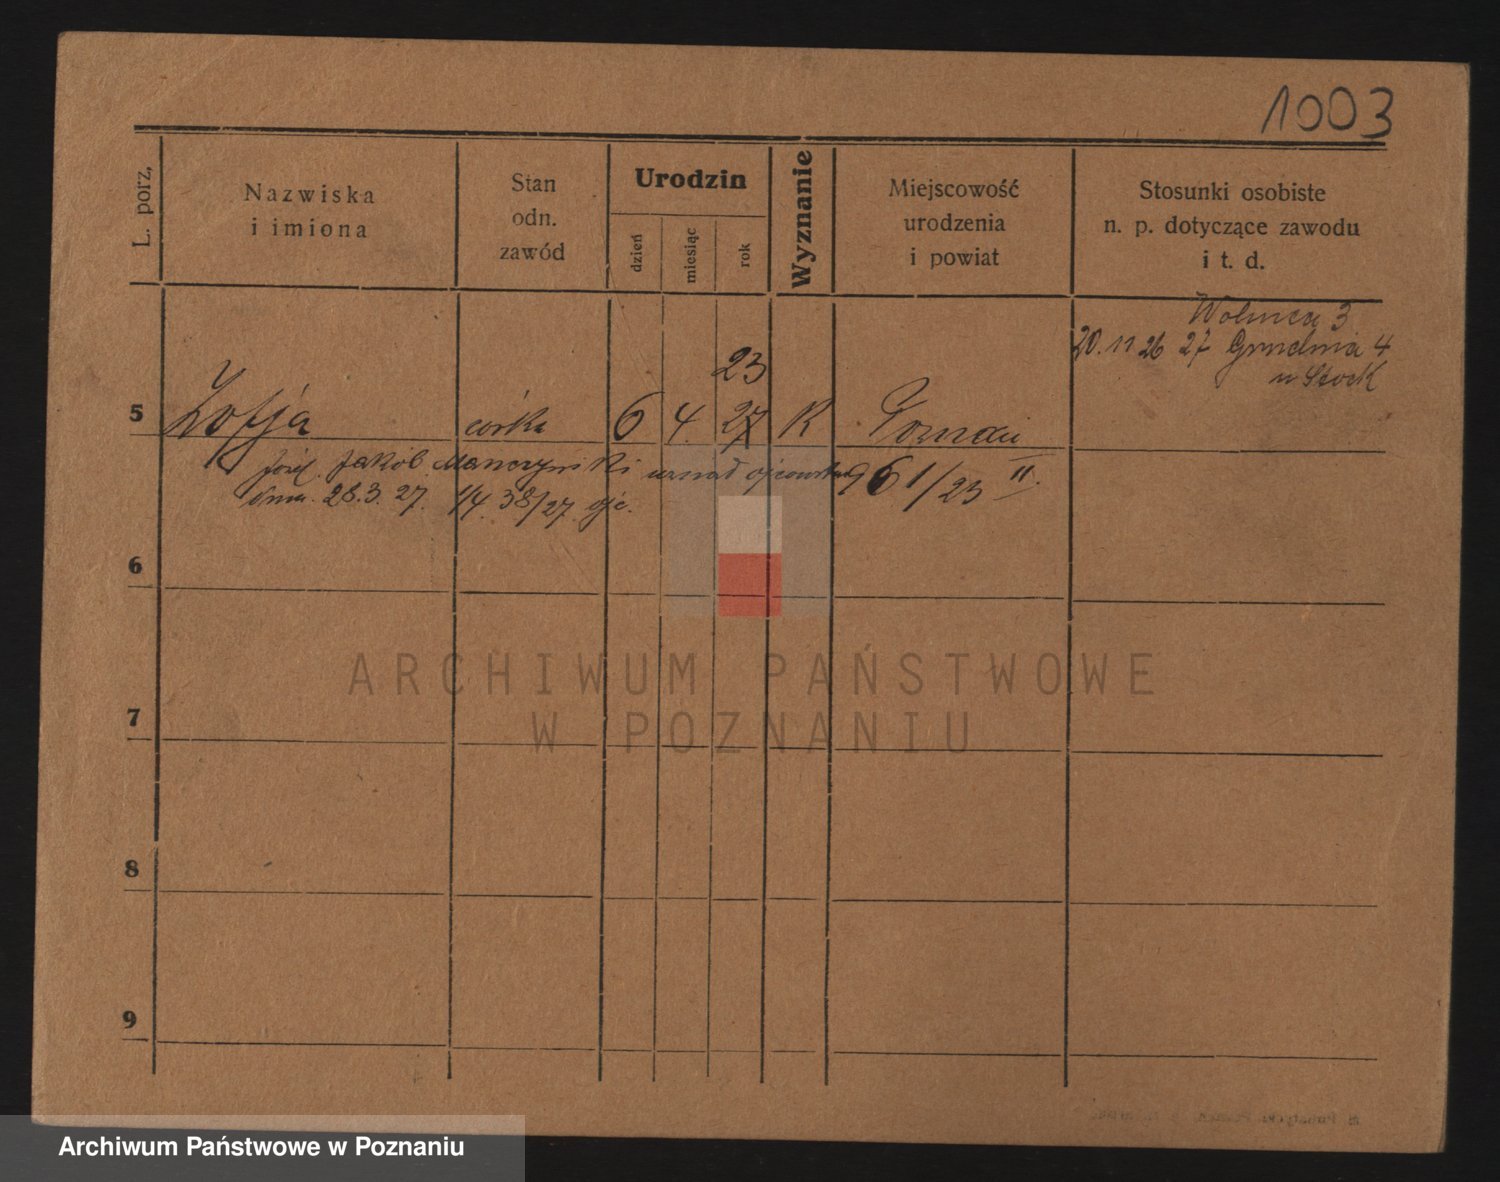 1003
L. porz.
Nazwiska
i imiona
Stan
odn.
zawód
Urodzin
dzień
miesiąc
rok
Wyznanie
Miejscowość
urodzenia
i powiat
Stosunki osobiste
n. p. dotyczące zawodu
i t. d.
Wolnica 3
20.11 26 27 Grudnia 4
u Stock
23
5 Zofja córka 6 4. 27 R Poznań
Józef Jakób Manczynski uznał ojcowstwo 961/23 II.
dnia 28.3.27. 1/4. 38/27 ojc.
6
7
8
9
ARCHIWUM PAŃSTWOWE
W POZNANIU
Archiwum Państwowe w Poznaniu